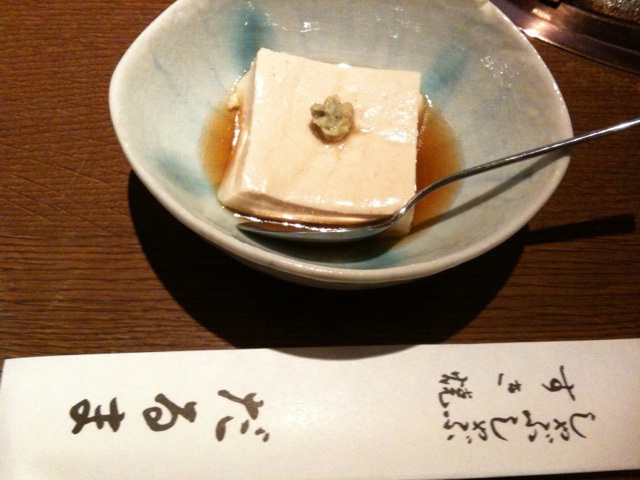 しゃぶしゃぶ
すき焼
だるま